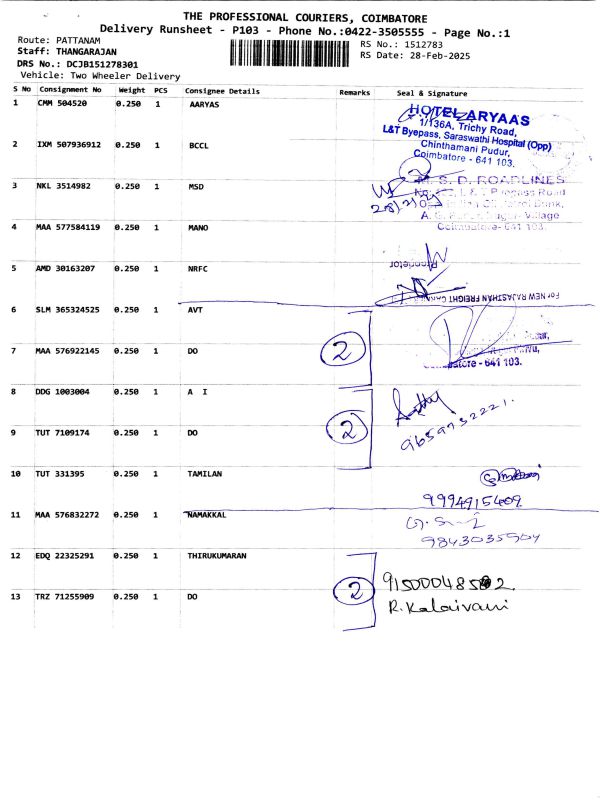 THE PROFESSIONAL COURIERS, COIMBATORE
Delivery Runsheet - P103 - Phone No.:0422-3505555 - Page No.:1
Route: PATTANAM
RS No.: 1512783
Staff: THANGARAJAN
RS Date: 28-Feb-2025
DRS No.: DCJB151278301
Vehicle: Two Wheeler Delivery
S No Consignment No Weight PCS Consignee Details Remarks Seal & Signature
1 CMM 504520 0.250 1 AARYAS
HOTEL ARYAAS
1/136A, Trichy Road,
L&T Byepass, Saraswathi Hospital (Opp)
Chinthamani Pudur,
Coimbatore - 641 103.
2 IXM 507936912 0.250 1 BCCL
3 NKL 3514982 0.250 1 MSD
M. S. D. ROADLINES
L & T Byepass Road
Village
Coimbatore- 641 103.
4 MAA 577584119 0.250 1 MANO
5 AMD 30163207 0.250 1 NRFC
Proprietor
For NEW RAJASTHAN FREIGHT
6 SLM 365324525 0.250 1 AVT
2
7 MAA 576922145 0.250 1 DO
Coimbatore - 641 103.
8 DDG 1003004 0.250 1 A I
2
9659732221.
9 TUT 7109174 0.250 1 DO
10 TUT 331395 0.250 1 TAMILAN
9994915409
11 MAA 576832272 0.250 1 NAMAKKAL
9843035904
12 EDQ 22325291 0.250 1 THIRUKUMARAN
2
13 TRZ 71255909 0.250 1 DO
R. Kalaivani